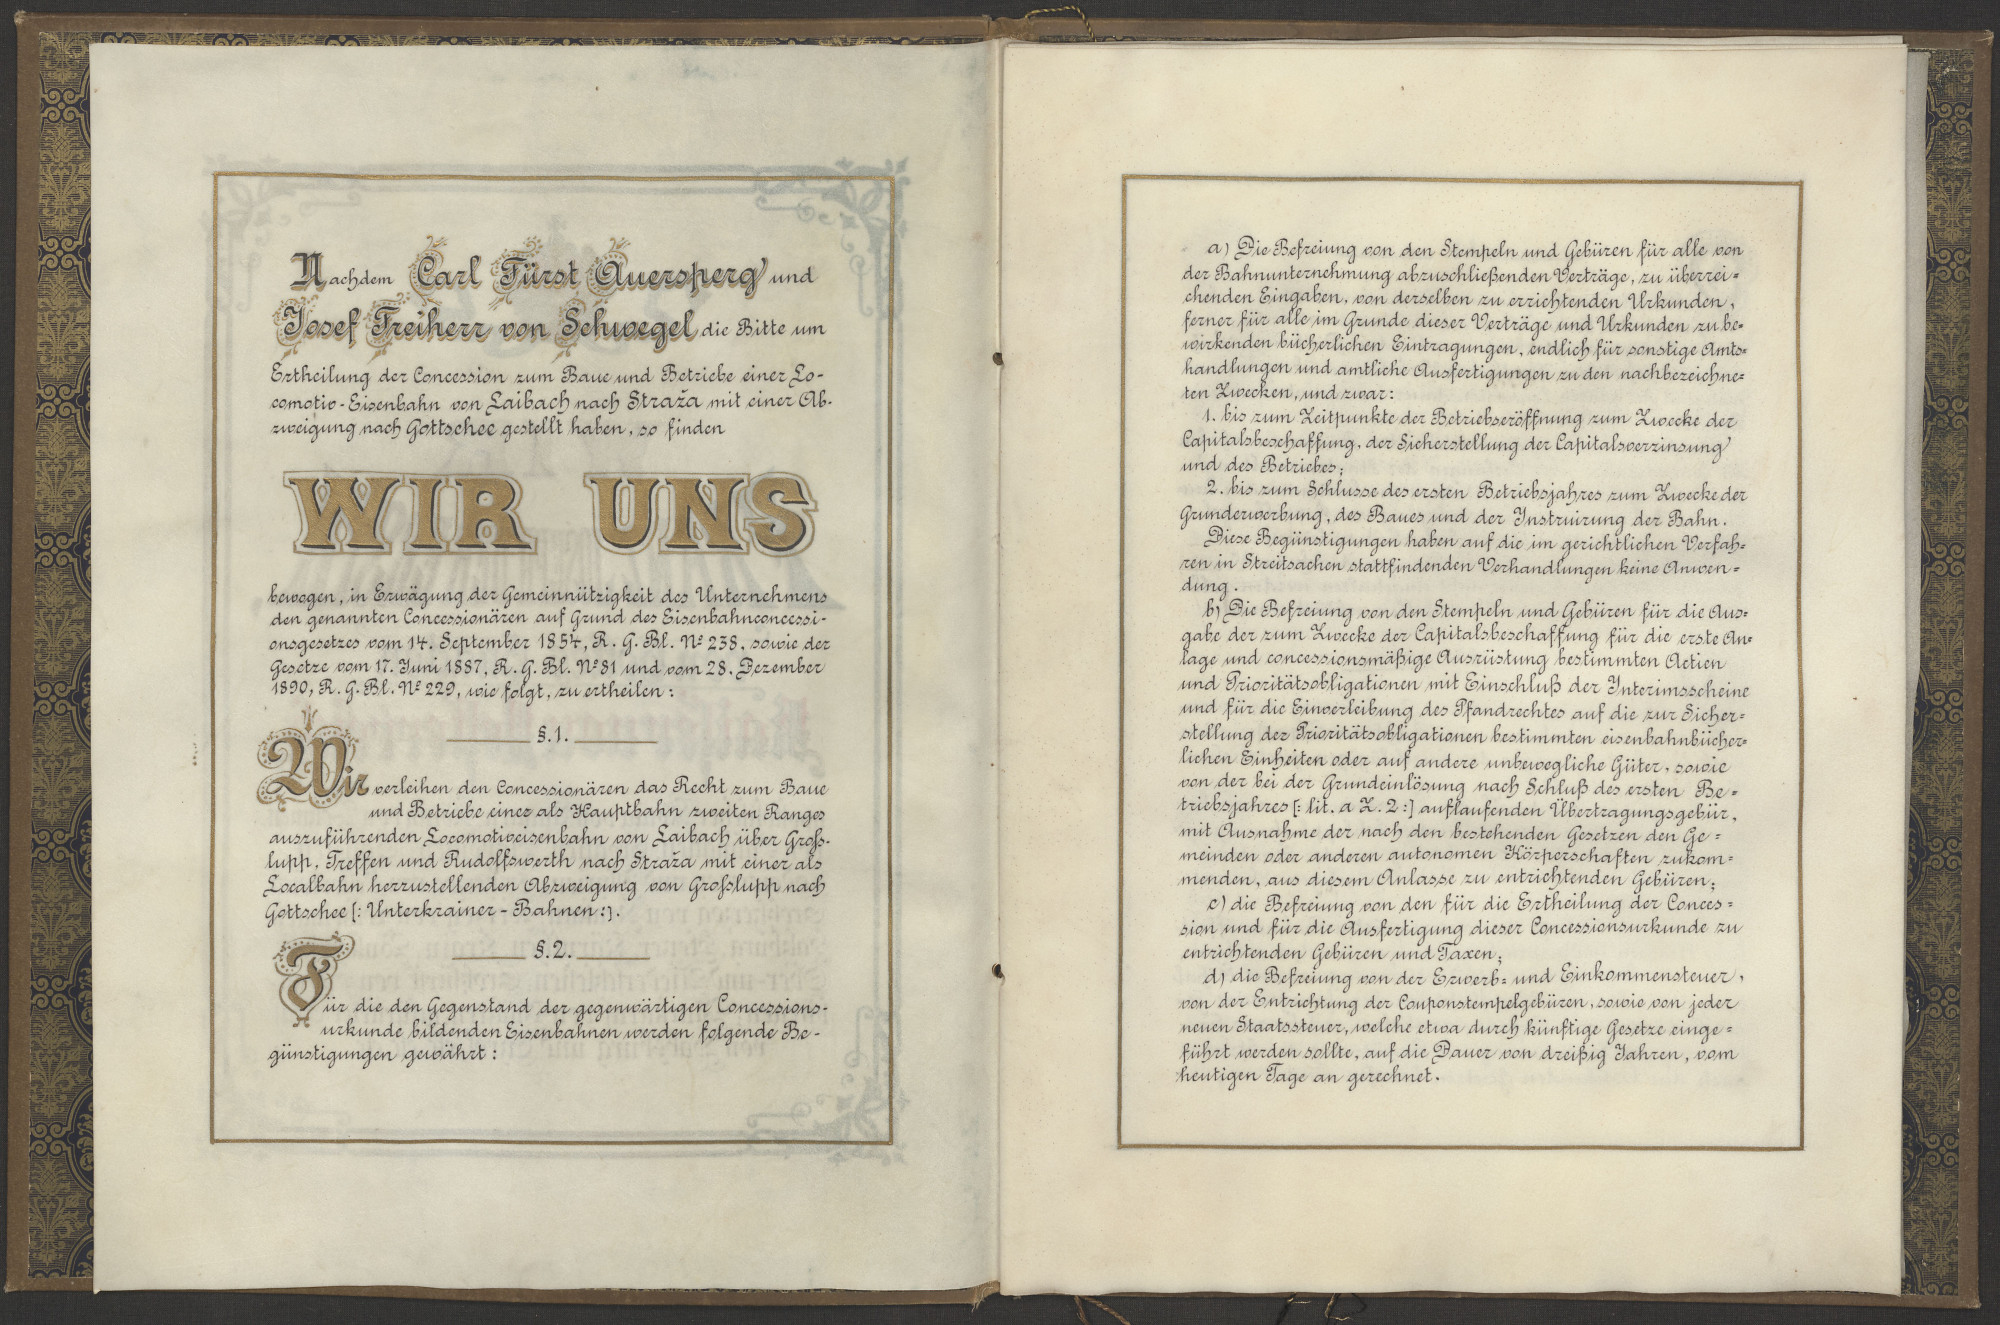 Nachdem Carl Fürst Auersperg und
Josef Freiherr von Schwegel die Bitte um
Ertheilung der Concession zum Baue und Betriebe einer Lo-
comotiv-Eisenbahn von Laibach nach Straža mit einer Ab-
zweigung nach Gottschee gestellt haben, so finden
WIR UNS
bewogen, in Erwägung der Gemeinnützigkeit des Unternehmens
den genannten Concessionären auf Grund des Eisenbahnconcessi-
onsgesetzes vom 14. September 1854, R. G. Bl. No 238, sowie der
Gesetze vom 17. Juni 1887, R. G. Bl. No 81 und vom 28. Dezember
1890, R. G. Bl. No 229, wie folgt, zu ertheilen:
§. 1.
Wir verleihen den Concessionären das Recht zum Baue
und Betriebe einer als Hauptbahn zweiten Ranges
auszuführenden Locomotiveisenbahn von Laibach über Groß-
lupp, Treffen und Rudolfswerth nach Straža mit einer als
Localbahn herzustellenden Abzweigung von Großlupp nach
Gottschee [: Unterkrainer-Bahnen :].
§. 2.
Für die den Gegenstand der gegenwärtigen Concessions-
urkunde bildenden Eisenbahnen werden folgende Be-
günstigungen gewährt:
a) Die Befreiung von den Stempeln und Gebüren für alle von
der Bahnunternehmung abzuschließenden Verträge, zu überrei=
chenden Eingaben, von derselben zu errichtenden Urkunden,
ferner für alle im Grunde dieser Verträge und Urkunden zu be=
wirkenden bücherlichen Eintragungen, endlich für sonstige Amts=
handlungen und amtliche Ausfertigungen zu den nachbezeichne=
ten Zwecken, und zwar:
1. bis zum Zeitpunkte der Betriebseröffnung zum Zwecke der
Capitalsbeschaffung, der Sicherstellung der Capitalsverzinsung
und des Betriebes;
2. bis zum Schlusse des ersten Betriebsjahres zum Zwecke der
Grunderwerbung, des Baues und der Instruirung der Bahn.
Diese Begünstigungen haben auf die im gerichtlichen Verfah=
ren in Streitsachen stattfindenden Verhandlungen keine Anwen=
dung.
b) Die Befreiung von den Stempeln und Gebüren für die Aus=
gabe der zum Zwecke der Capitalsbeschaffung für die erste An=
lage und concessionsmäßige Ausrüstung bestimmten Actien
und Prioritätsobligationen mit Einschluß der Interimsscheine
und für die Einverleibung des Pfandrechtes auf die zur Sicher=
stellung der Prioritätsobligationen bestimmten eisenbahnbücher=
lichen Einheiten oder auf andere unbewegliche Güter, sowie
von der bei der Grundeinlösung nach Schluß des ersten Be=
triebsjahres [: lit. a Z. 2 :] auflaufenden Übertragungsgebür,
mit Ausnahme der nach den bestehenden Gesetzen den Ge=
meinden oder anderen autonomen Körperschaften zukom=
menden, aus diesem Anlasse zu entrichtenden Gebüren;
c) die Befreiung von den für die Ertheilung der Conces=
sion und für die Ausfertigung dieser Concessionsurkunde zu
entrichtenden Gebüren und Taxen;
d) die Befreiung von der Erwerb= und Einkommensteuer,
von der Entrichtung der Couponstempelgebüren, sowie von jeder
neuen Staatssteuer, welche etwa durch künftige Gesetze einge=
führt werden sollte, auf die Dauer von dreißig Jahren, vom
heutigen Tage an gerechnet.